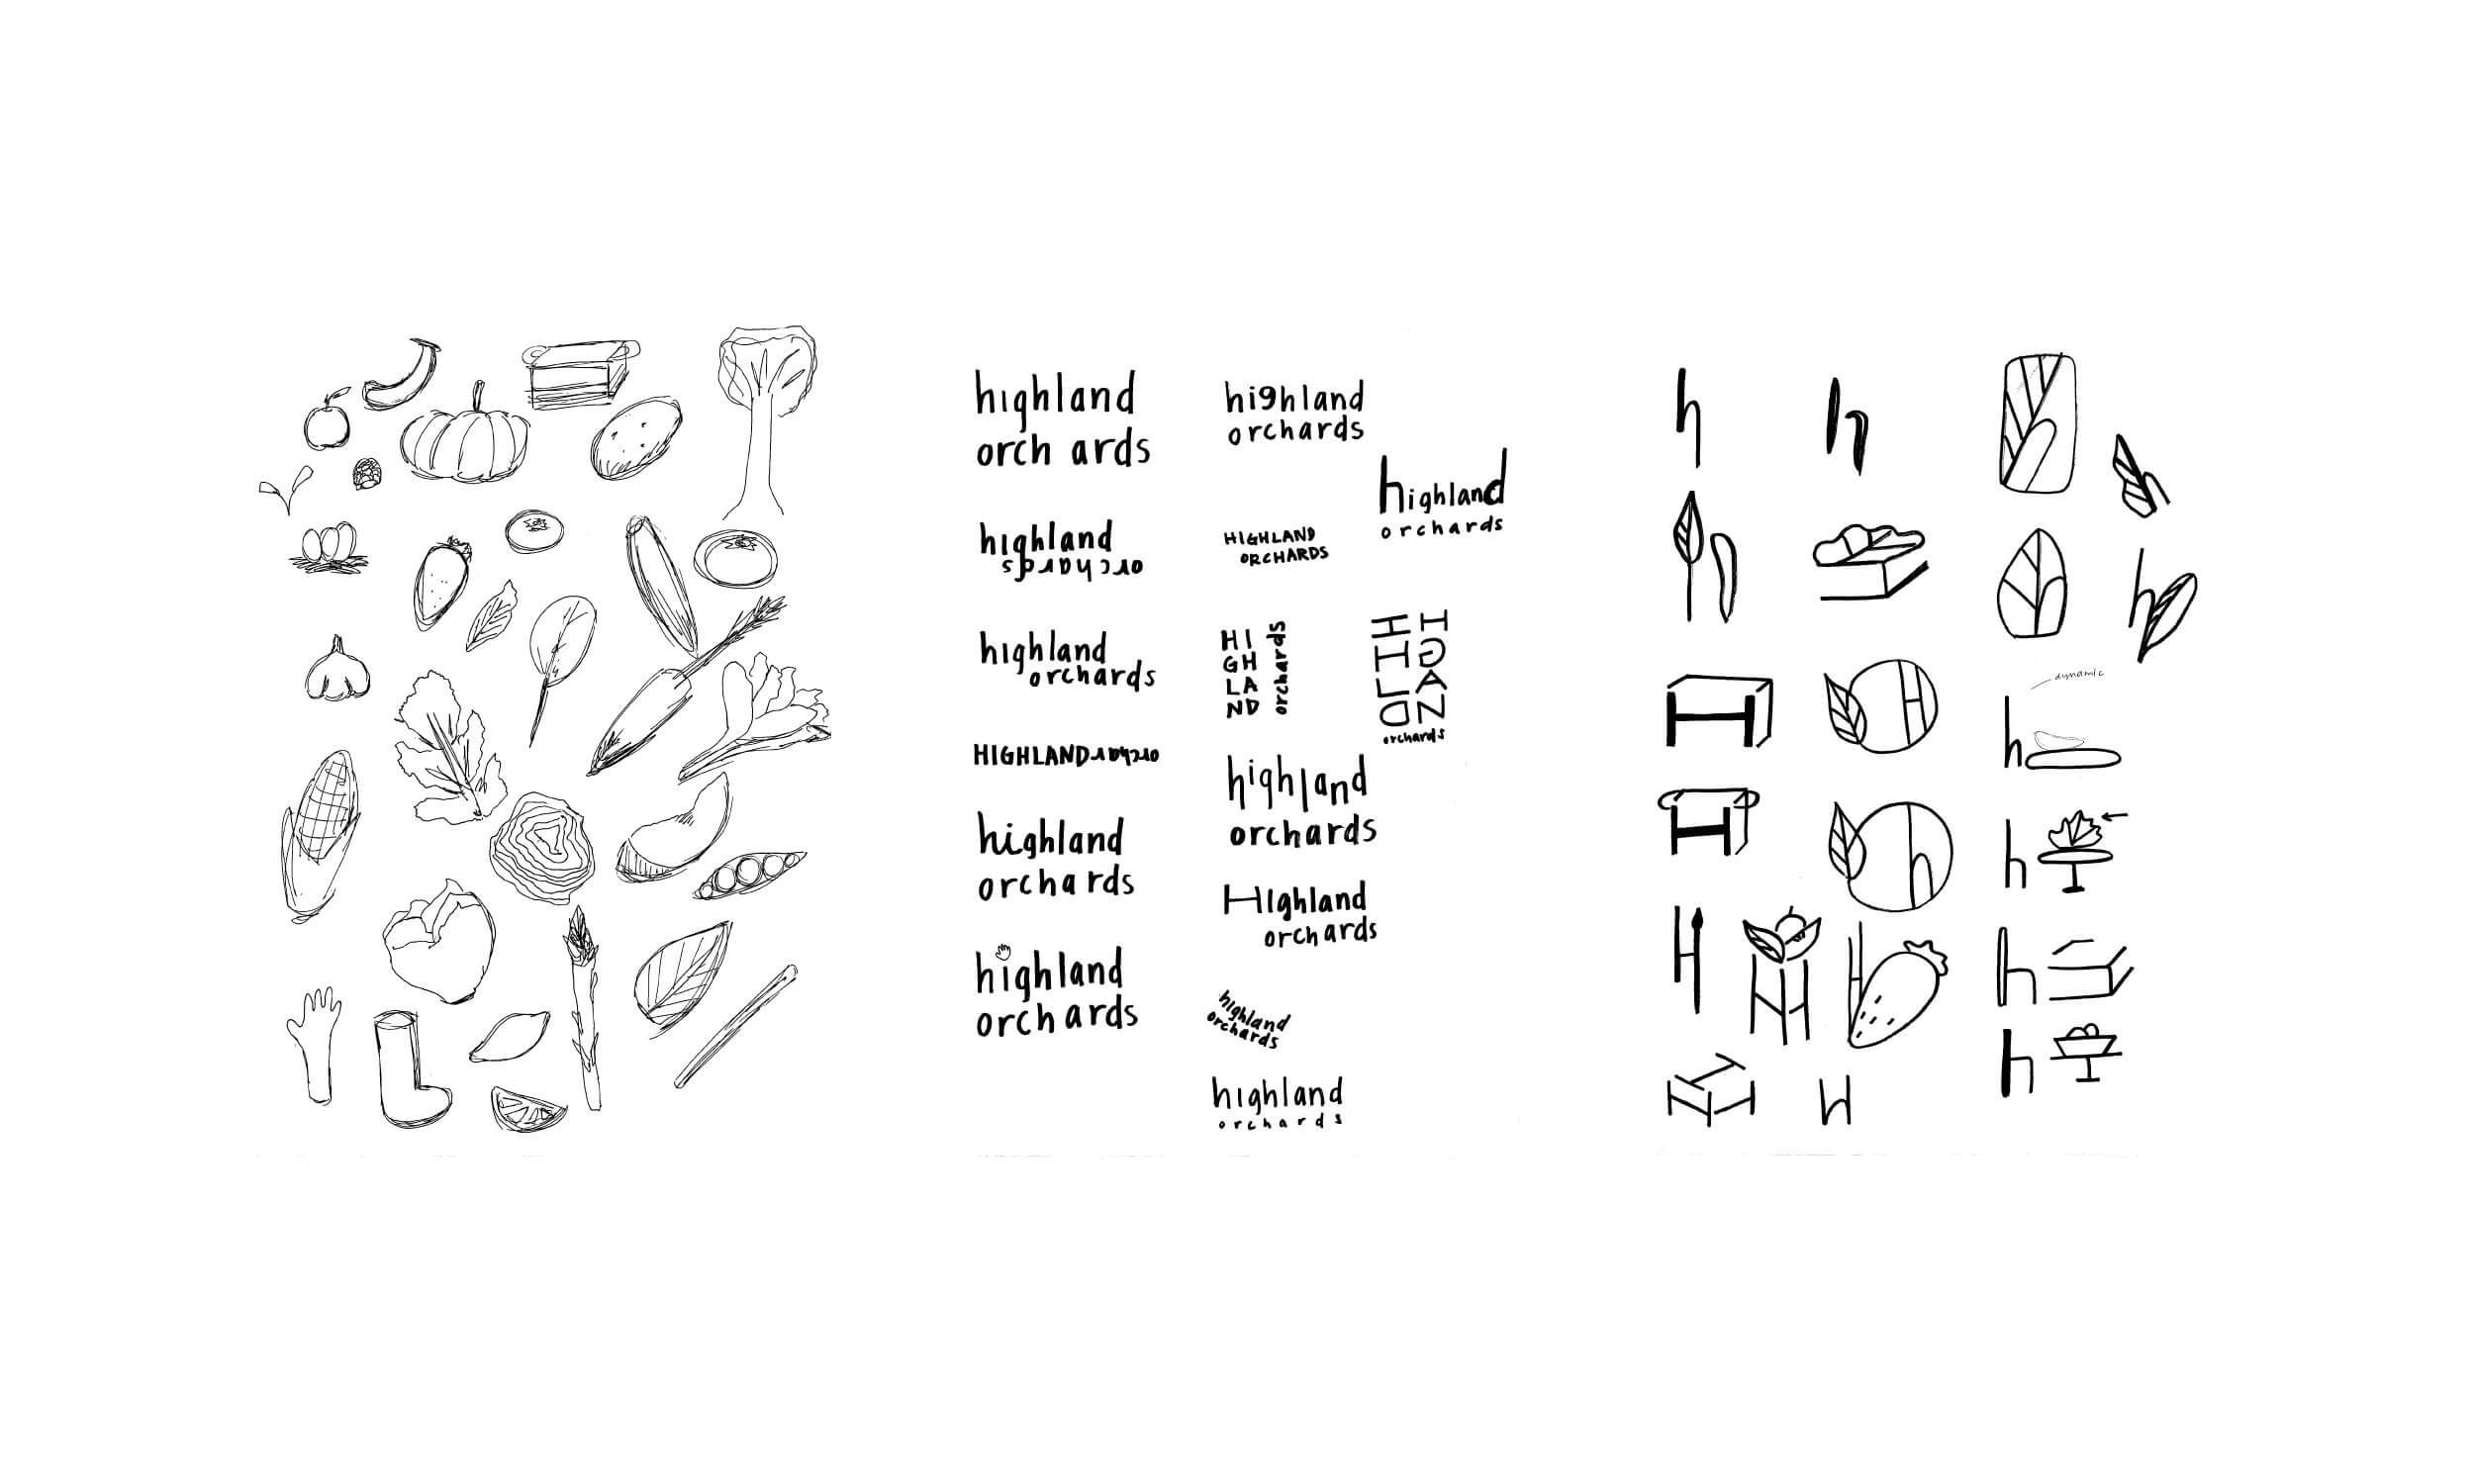 highland
orch ards
highland
orchards
highland
orchards
HIGHLAND orchar
highland
orchards
highland
orchards
highland
orchards
highland
orchards
HIGHLAND
ORCHARDS
HI
GH
LA
ND
orchards
HI
HG
LA
DN
orchards
highland
orchards
HIghland
orchards
highland
orchards
highland
orchards
h
h
H
h
H
h
H
H
h
H
H
H
dynamic
h
h
h
h